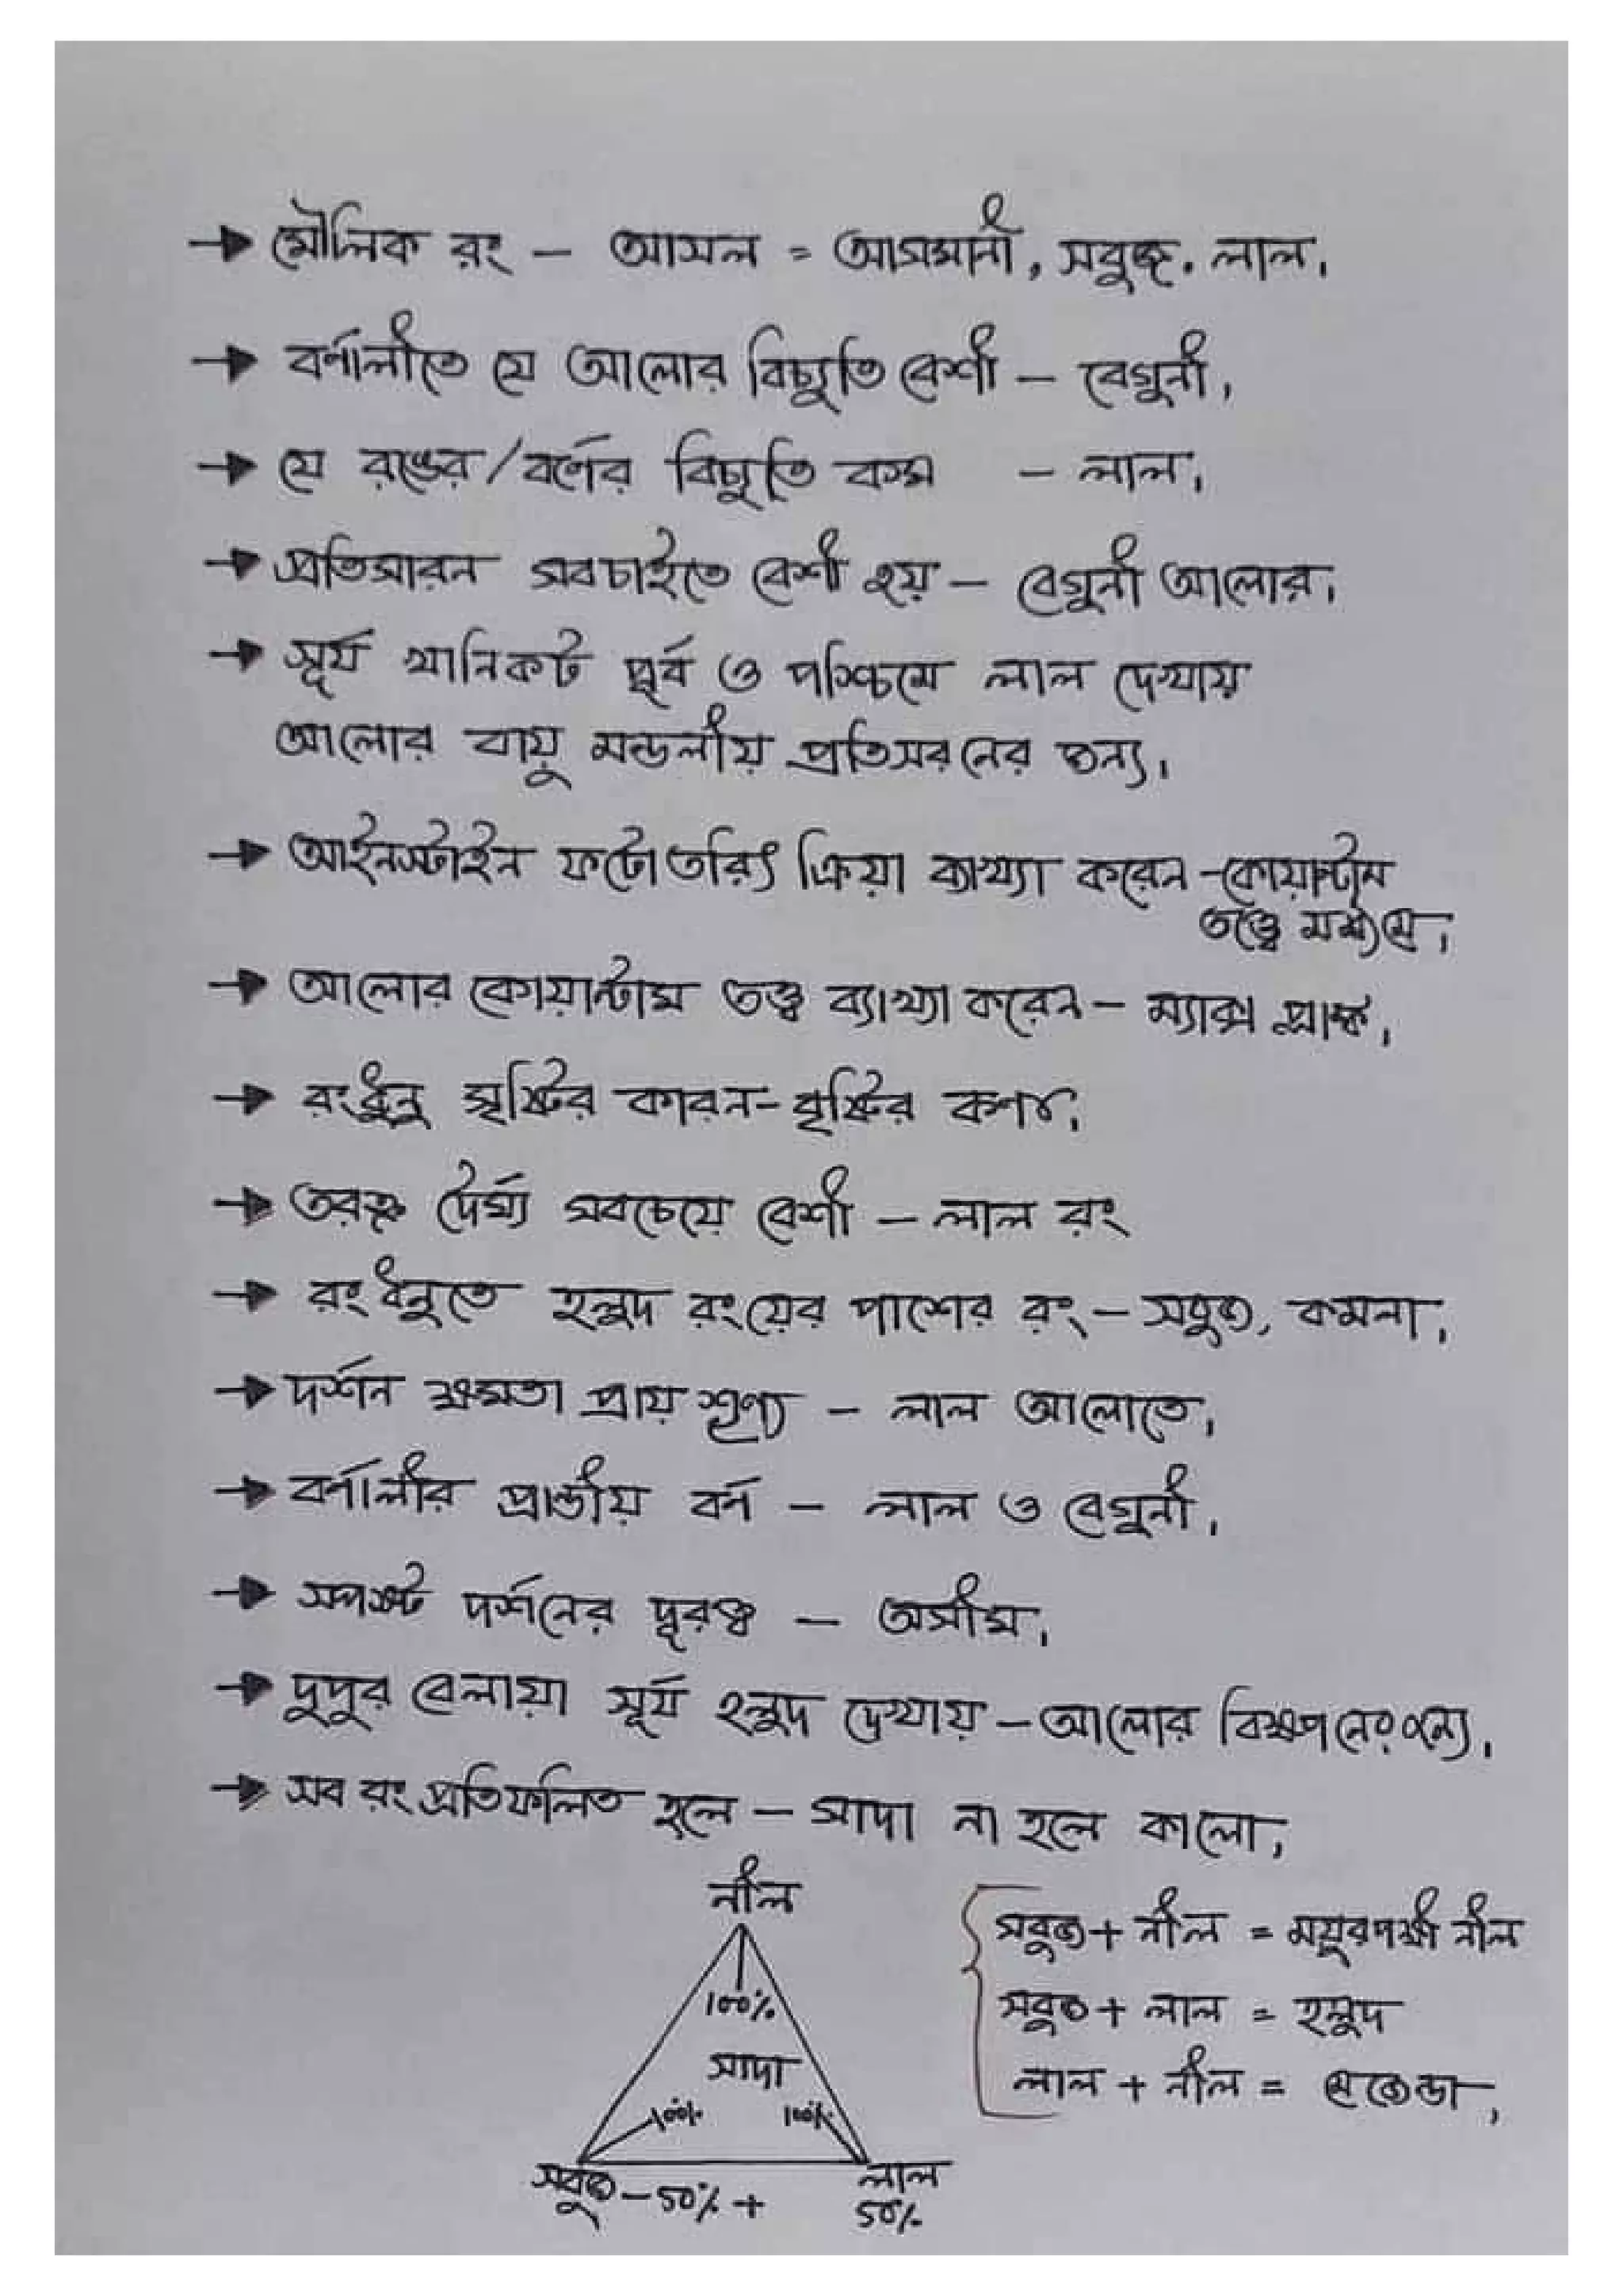 → মৌলিক রং – আসল = আসমানী, সবুজ, লাল।
→ বর্ণালীতে যে আলোর বিচ্যুতি বেশী – বেগুনী।
→ যে রঙের/বর্ণের বিচ্যুতি কম – লাল।
→ প্রতিসারন সবচাইতে বেশী হয় – বেগুনী আলোর।
→ সূর্য খানিকট পূর্ব ও পশ্চিমে লাল দেখায়
আলোর বায়ু মন্ডলীয় প্রতিসরনের জন্য।
→ আইনস্টাইন ফটো তরিৎ ক্রিয়া ব্যাখ্যা করেন – কোয়ান্টাম
তত্ত্বে মাধ্যমে।
→ আলোর কোয়ান্টাম তত্ত্ব ব্যাখ্যা করেন – ম্যাক্স প্লাঙ্ক।
→ রংধুনু সৃষ্টির কারন - বৃষ্টির কণা।
→ তরঙ্গ দৈর্ঘ্য সবচেয়ে বেশী – লাল রং
→ রংধনুতে হলুদ রংয়ের পাশের রং – সবুজ, কমলা।
→ দর্শন ক্ষমতা প্রায় শূণ্য – লাল আলোতে।
→ বর্ণালীর প্রান্তীয় বর্ন – লাল ও বেগুনী।
→ স্পষ্ট দর্শনের দূরত্ব – অসীম।
→ দুপুর বেলায়া সূর্য হলুদ দেখায় – আলোর বিক্ষপনের জন্য।
→ সব রং প্রতিফলিত হলে – সাদা না হলে কালো।
নীল
সবুজ + নীল = ময়ূরপঙ্খী নীল
100%
সবুজ + লাল = হলুদ
সাদা
লাল + নীল = মেজেন্ডা।
100% 100%
সবুজ – 50% + লাল
50%